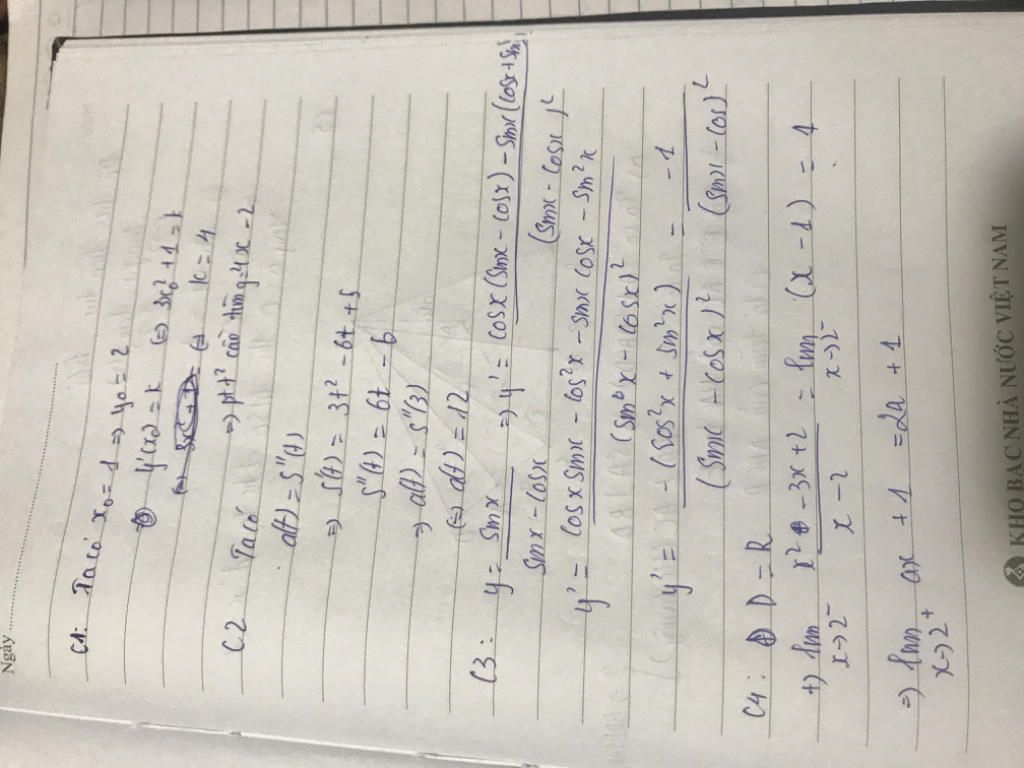 Ngày
C1: Ta có x₀ = 1 => y₀ = 2
y'(x₀) = k <=> 3x₀² + 1 = k
<=> k = 4
=> ptt² cần tìm y = 4x - 2
C2 Ta có
a(t) = S''(t)
=> S'(t) = 3t² - 6t + 5
S''(t) = 6t - 6
=> a(t) = S''(3)
(=) a(t) = 12
C3: y = sinx / (sinx - cosx) => y' = cosx(sinx - cosx) - sinx(cosx + sinx) / (sinx - cosx)²
y' = cosx sinx - cos²x - sinx cosx - sin²x / (sinx - cosx)²
y' = -(cos²x + sin²x) / (sinx - cosx)² = -1 / (sinx - cos)²
C4: D = R
+) lim x->2⁻ x² - 3x + 2 / x - 2 = lim x->2⁻ (x - 1) = 1
=> lim x->2⁺ ax + 1 = 2a + 1
KHO BẠC NHÀ NƯỚC VIỆT NAM